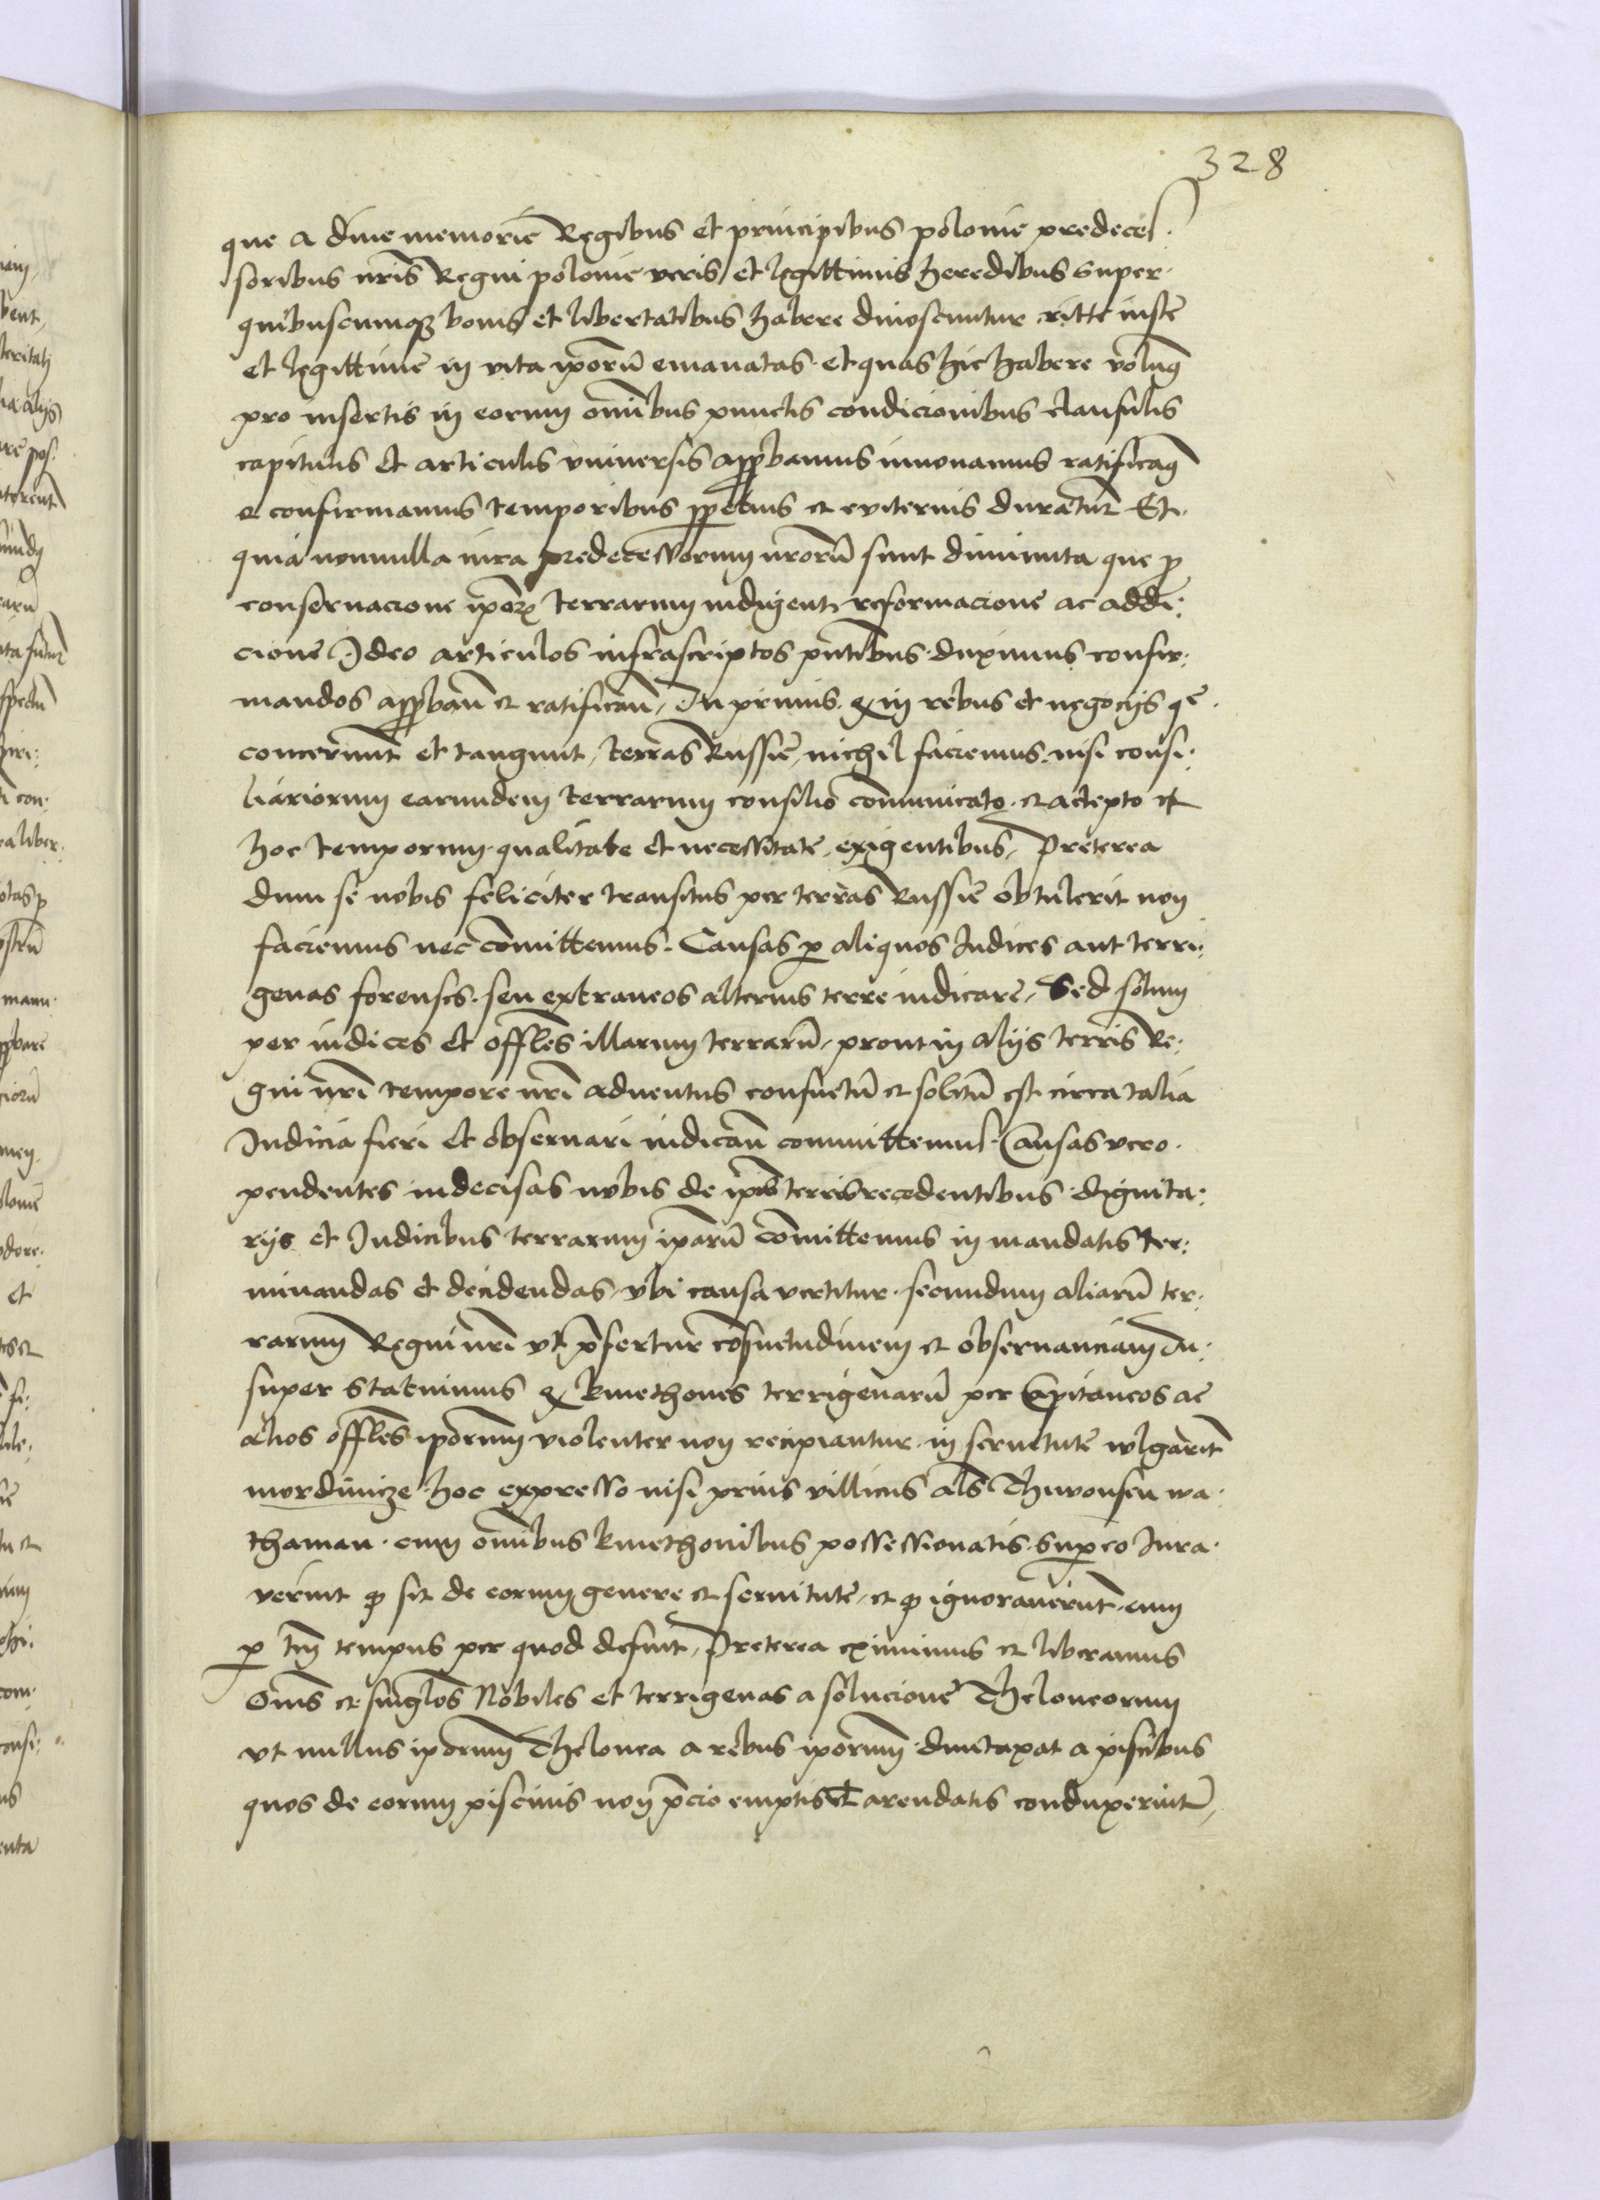 328
que a dive memorie Regibus et principibus polonie predeces
soribus nris Regni polonie veris et legittimis heredibus super
quibuscumqꝫ bonis et libertatibus habere dinoscuntur ritte iuste
et legittime in vita ipoꝝ emanatas et quas hic habere volumꝰ
pro insertis in eorum omibus punctis condicionibus clausulis
capitulis et articulis vniuersis approbamus innouamus ratificamꝰ
et confirmamus temporibus ꝑpetuis et euiternis duratur Et
quia nonnulla iura predecessorum nrorū sunt diminuta que ꝓ
conseruacione ipoꝝ terrarum indigent reformacione ac addi
cione Ideo articulos infrascriptos pntibus duximus confir
mandos approbam et ratificam In primis ꝙ in rebus et negocijs que
concernunt et tangunt terras Russie nichil faciemus nisi consi
liariorum earundem terrarum consilio comunicato et accepto et
hoc temporum qualitate et necessitate exigentibus Preterea
dum se nobis feliciter transitus per terras Russie obtulerit non
faciemus nec comittemus Causas ꝑ aliquos Iudices aut terri
genas forenses seu extraneos alterius terre iudicare Sed solum
per iudices et offles illarum terrarū prout in alijs terris Re
gni nri tempore nri aduentus consuetū et solitū est circa talia
Iudicia fieri et obseruari iudicam committemus Causas vero
pendentes indecisas nobis de ipis terris recedentibus dignita
rijs et Iudicibus terrarum iparū comittemus in mandatis ter
minandas et decidendas vbi causa vertitur secundum aliarū ter
rarum Regni nri vt p̄fertur cosuetudinem et obseruanciam In
super Statuimus ꝙ kmethones terrigenarū per Capitaneos ac
alios offles iporum violenter non recipiantur in seruitute wlgarit
mordunicze hoc expresso nisi prius villicus als Thiwon seu wa
thaman cum omibus kmethonibus possessionatis super eo Iura
verint ꝙ sit de eorum genere et seruitute et ꝙ ignorauerint eum
ꝑ tm tempus per quod defuit Preterea eximimus et liberamus
Oms et singlos Nobiles et terrigenas a solucione Theloneorum
vt nullus iporum Thelonea a rebus iporum dumtaxat a piscibus
quos de eorum piscinis non p̄cio emptis et arendatis conduxerint